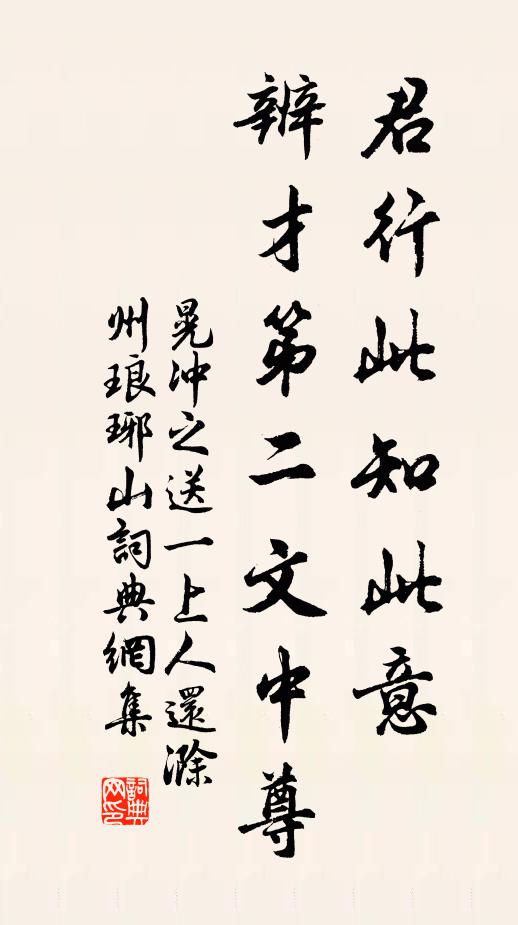 君行此知此意
辨才第二文中尊
晁沖之送一上人還滁
州琅琊山詞典網集
詞典
网印